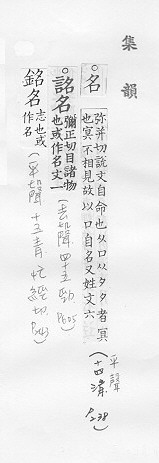 集韻
名 彌并切說文自命也从口从夕夕者冥
也冥不相見故以口自名又姓文六
(平聲
十四清
P.238)
詺名 彌正切目諸物
也或作名文一
(去聲四十五勁
P605)
銘名 志也或
作名
(平聲十五青忙經切
P243)